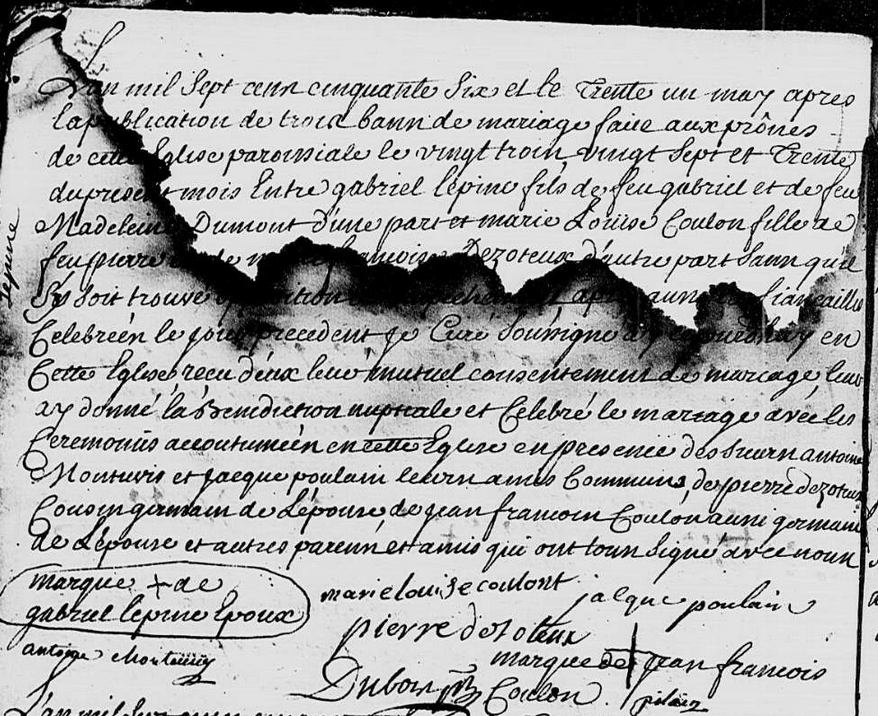 L'an mil Sept cenn cinquante Six et le Trente un may apres
la publication de troix bann de mariage faite aux prônes
de cette Eglise paroissiale le vingt troin, vingt Sept et Trente
du present mois Entre gabriel lépine fils de feu gabriel et de feu
Madeleine Dumont d'une part et marie Louise Coulon fille de
feu pierre de françoise Dezoteux d'autre part sann qu'il
Sy soit trouvé fiançailles
Celebreén le jour precedent je Curé Soussigné en
Cette Eglise recu d'eux leur mutuel consentement de mariage leur
ay donné la Benediction nuptiale et Celebré le mariage avec les
Ceremoniis accoutumeén en cette Eglise en presence des Sieurn antoine
et jacque poulain leurn amis Communs, de pierre dezoteux
Cousin germain de L'épouse de jean francoin Coulon aussi germain
de L'épouse et autres parenn et amis qui ont toun Signé avec noun
Lepine
marque + de
gabriel lepine Epoux
marie louise coullont
jacque poulain
pierre dezoteux
antoine
marque de jean francois
Coulon